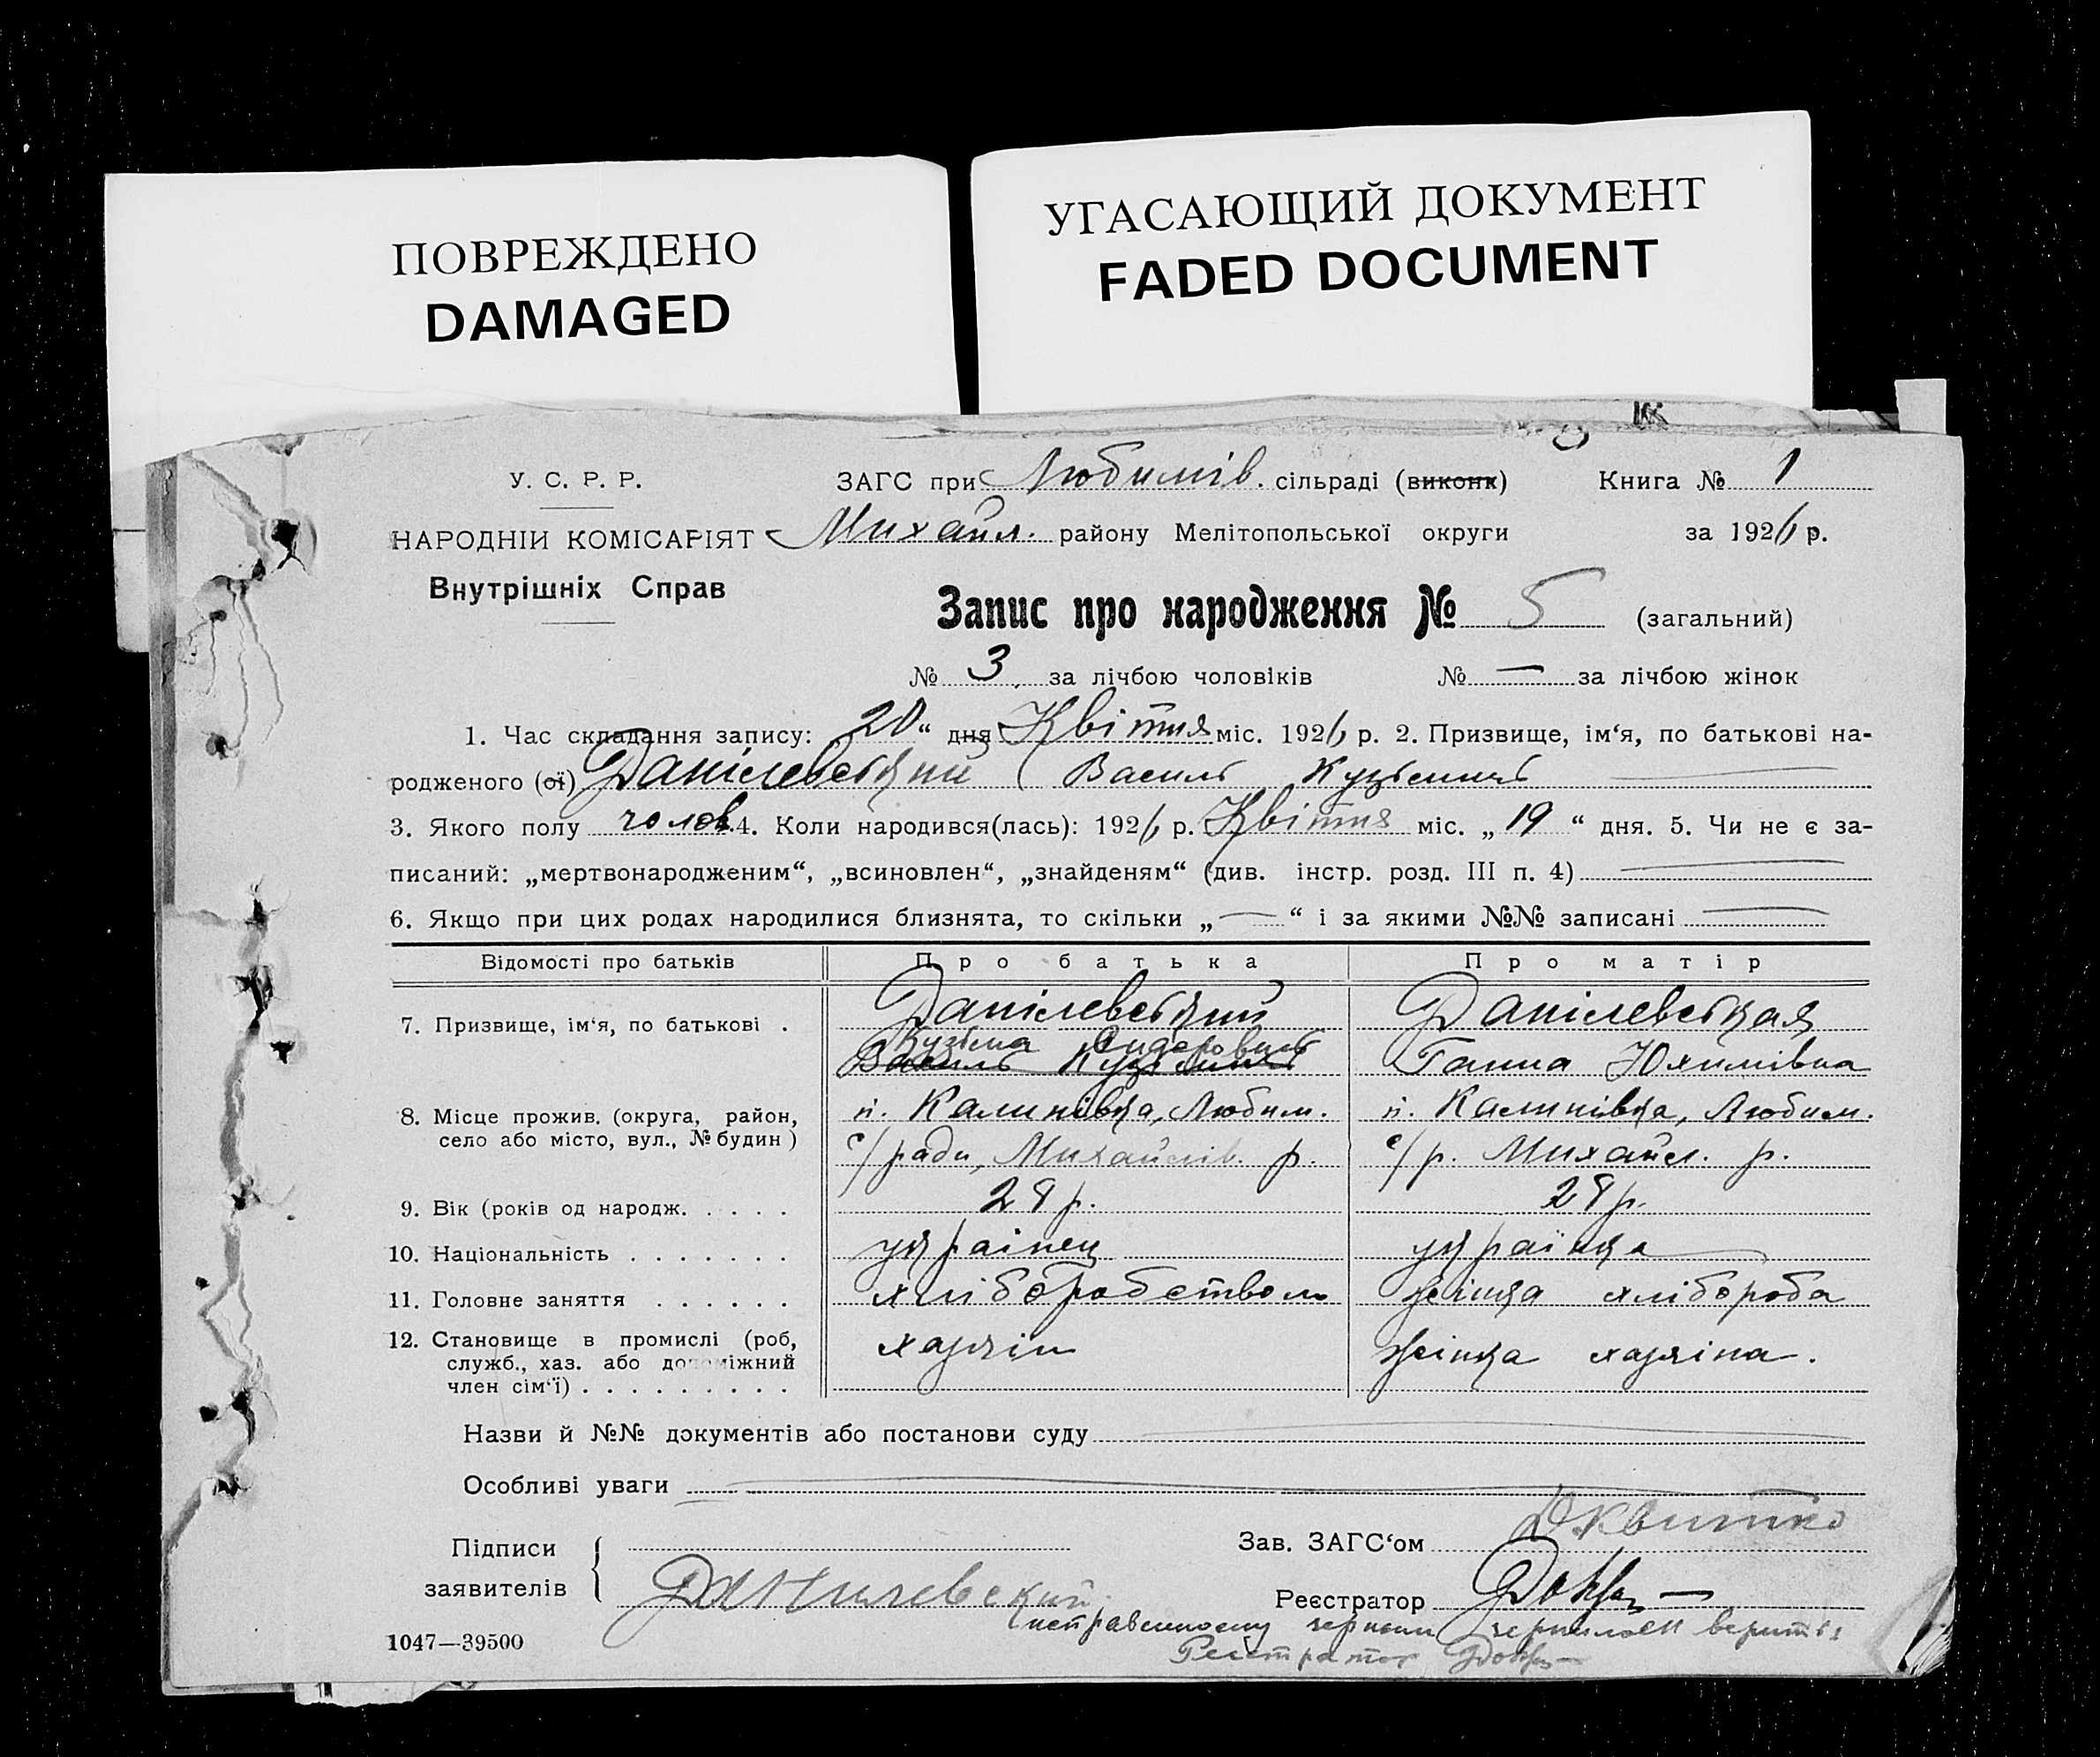 ПОВРЕЖДЕНО
DAMAGED
УГАСАЮЩИЙ ДОКУМЕНТ
FADED DOCUMENT
У. С. Р. Р.
НАРОДНІЙ КОМІСАРІЯТ
Внутрішніх Справ
ЗАГС при Любимів. сільраді (виконк) Книга № 1
Михайл. району Мелітопольської округи за 1926 р.
Запис про народження № 5 (загальний)
№ 3 за лічбою чоловіків № — за лічбою жінок
1. Час складання запису: 20 " дня Квітня міс. 1926 р. 2. Призвище, ім'я, по батькові на-
родженого (ої) Данілевський Василь Кузьмич
3. Якого полу чолов. 4. Коли народився(лась): 1926 р. Квітня міс. „ 19 " дня. 5. Чи не є за-
писаний: „мертвонародженим", „всиновлен", „знайденям" (див. інстр. розд. III п. 4)
6. Якщо при цих родах народилися близнята, то скільки „ — " і за якими №№ записані —
Відомості про батьків Про батька Про матір
7. Призвище, ім'я, по батькові . Данілевський Данілевская
Кузьма Сидорович
Василь Кузьмич Ганна Юхимівна
8. Місце прожив. (округа, район, п. Калинівка, Любим. п. Калинівка, Любим.
село або місто, вул., № будин) с/ради, Михайлів. р. с/р. Михайл. р.
9. Вік (років од народж. . . . . 28 р. 28 р.
10. Національність . . . . . . . українец українка
11. Головне заняття . . . . . . хліборобством жінка хлібороба
12. Становище в промислі (роб, хазяін жінка хазяіна.
служб., хаз. або допоміжний
член сім'ї) . . . . . . . . .
Назви й №№ документів або постанови суду
Особливі уваги
Підписи
заявителів
Данилевский
Зав. ЗАГС'ом Д Квитко
Реєстратор
исправленному чернилом верить
Реістратор
1047—39500